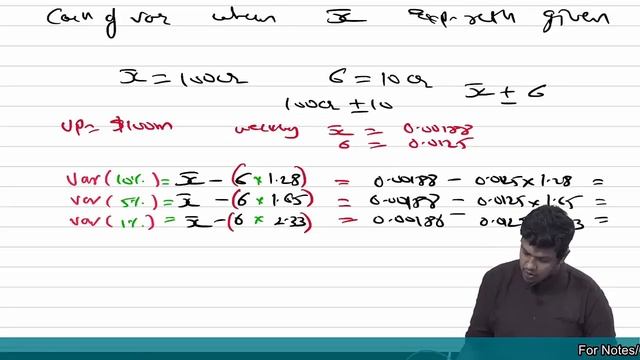 Calc of var when x̄ exp. return given
x̄ = 100cr 6 = 10cr x̄ ± 6
100cr ± 10
VP = $100m weekly x̄ = 0.00188
6 = 0.0125
Var (10%) = x̄ - (6 × 1.28) = 0.00188 - 0.0125 × 1.28 =
Var (5%) = x̄ - (6 × 1.65) = 0.00188 - 0.0125 × 1.65 =
Var (1%) = x̄ - (6 × 2.33) = 0.00188 -
For Notes/